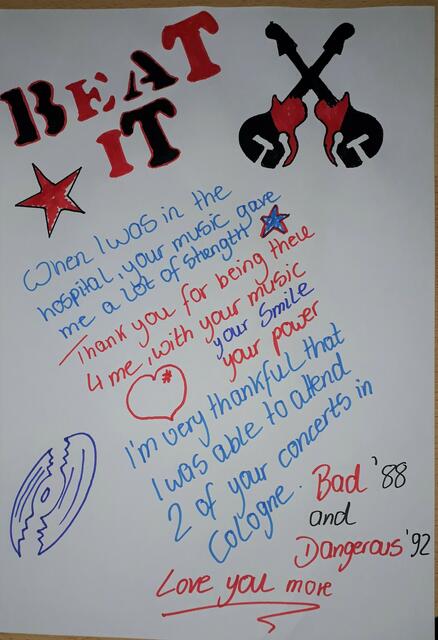 BEAT
IT
When I was in the
hospital, your music gave
me a lot of strength
Thank you for being there
4 me, with your music
your smile
your power
I'm very thankful that
I was able to attend
2 of your concerts in
Cologne. Bad '88
and
Dangerous '92
Love you more